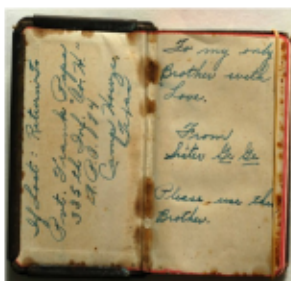 If Lost: Return to
Pvt. Frank
335th Inf. Co. H.
A.P.O. #84
Camp Howze
Texas
To my only
Brother with
Love.
From
Sister Ge Ge
Please use this
Brother.